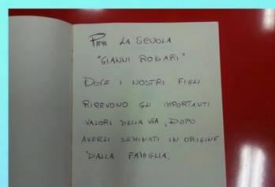 PER LA SCUOLA
"GIANNI RODARI"
DOVE I NOSTRI FIGLI
RICEVONO GLI IMPORTANTI
VALORI DELLA VITA, DOPO
AVERLI SEMINATI IN ORIGINE
DALLA FAMIGLIA.